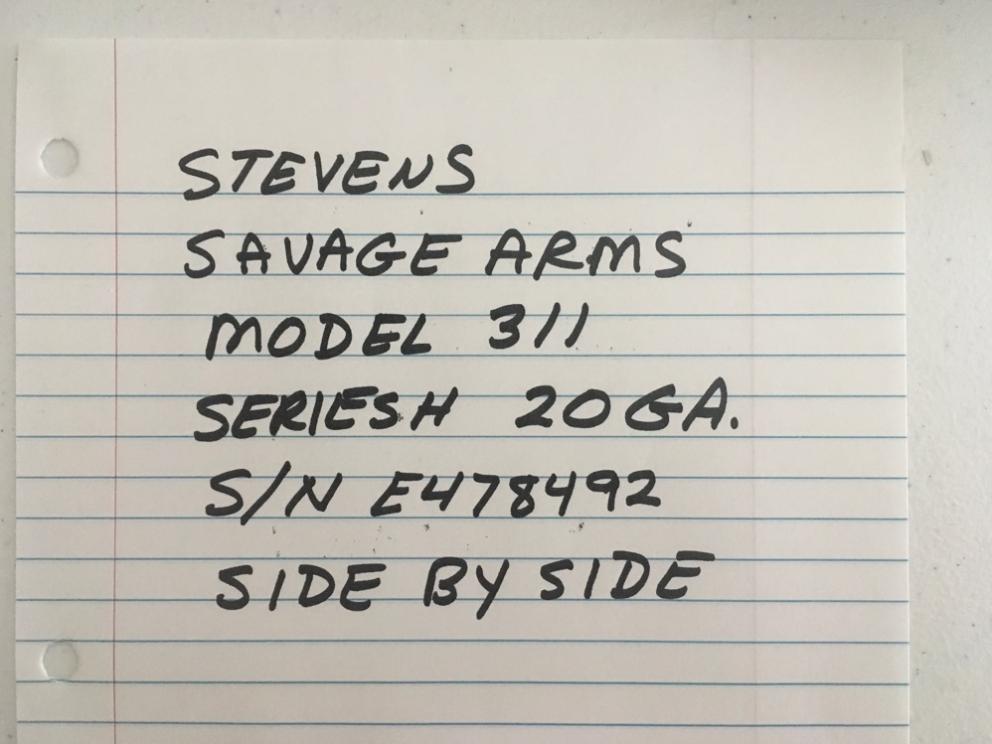 STEVENS
SAVAGE ARMS
MODEL 311
SERIES H 20 GA.
S/N E478492
SIDE BY SIDE